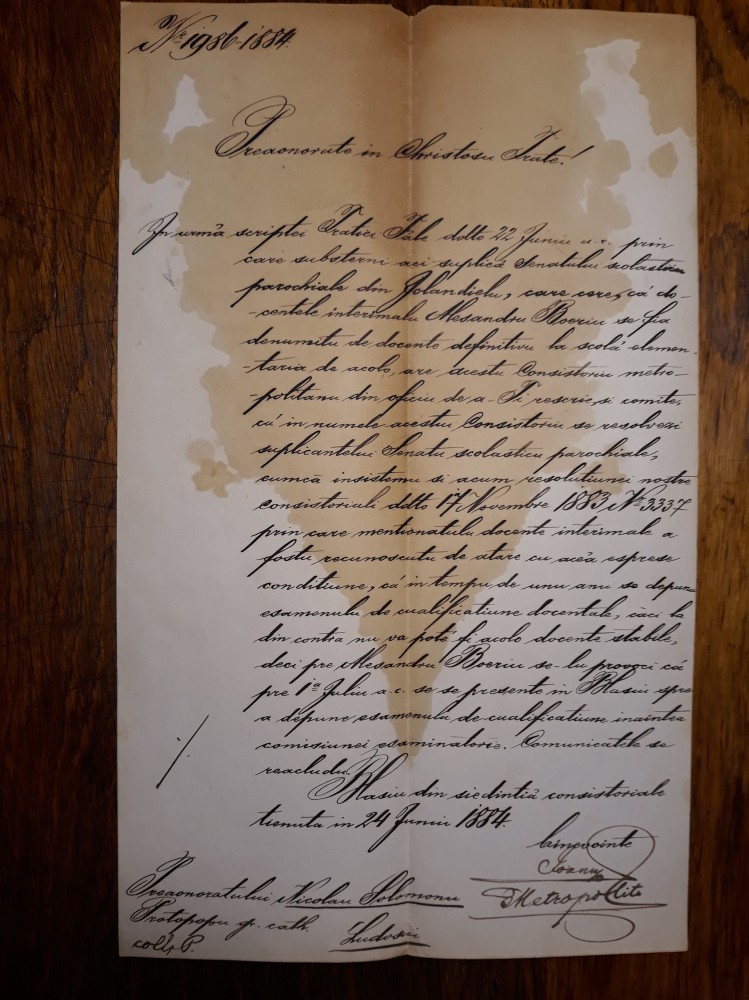 Nr. 1986-1884.
Preaonorate in Christosu Frate!
In urm'a scriptei Fratiei Tale ddto 22 Juniu a. c. prin
care substerni aci suplic'a Senatului scolasticu
parochiale din, care cere, că do-
-centele interimalu Alesandru Boeriu se fia
denumitu de docente definitivu la scól'a elemen-
-taria de acolo, are acestu Consistoriu metro-
-politanu din oficiu de a-Ti rescrie, si comite,
că in numele acestui Consistoriu se resolvezi
suplicantelui Senatu scolasticu parochiale,
cumcă insistemu si acum resolutiunei nostre
consistoriali ddto 17 Novembre 1883 Nr. 3337
prin care mentionatulu docente interimale a
fostu recunoscutu de atare cu acea esprese
conditiune, că in tempu de unu anu se depuna
esamenulu de cualificatiune docentale, căci la
din contra nu va poté fi acolo docente stabile,
deci pre Alesandru Boeriu se-lu provoci că
pre 1-a Juliu a. c. se se presente in Blasiu spre
a depune esamenulu de cualificatiune inaintea
comisiunei esaminatorie. Comunicatele se
reacludu.
Blasiu din siedinti'a consistoriale
tienuta in 24 Juniu 1884.
binevointe
Ioanu
Metropolitu
Preaonoratului Nicolau Solomonu
Protopopu gr. cath.
Ludosiu